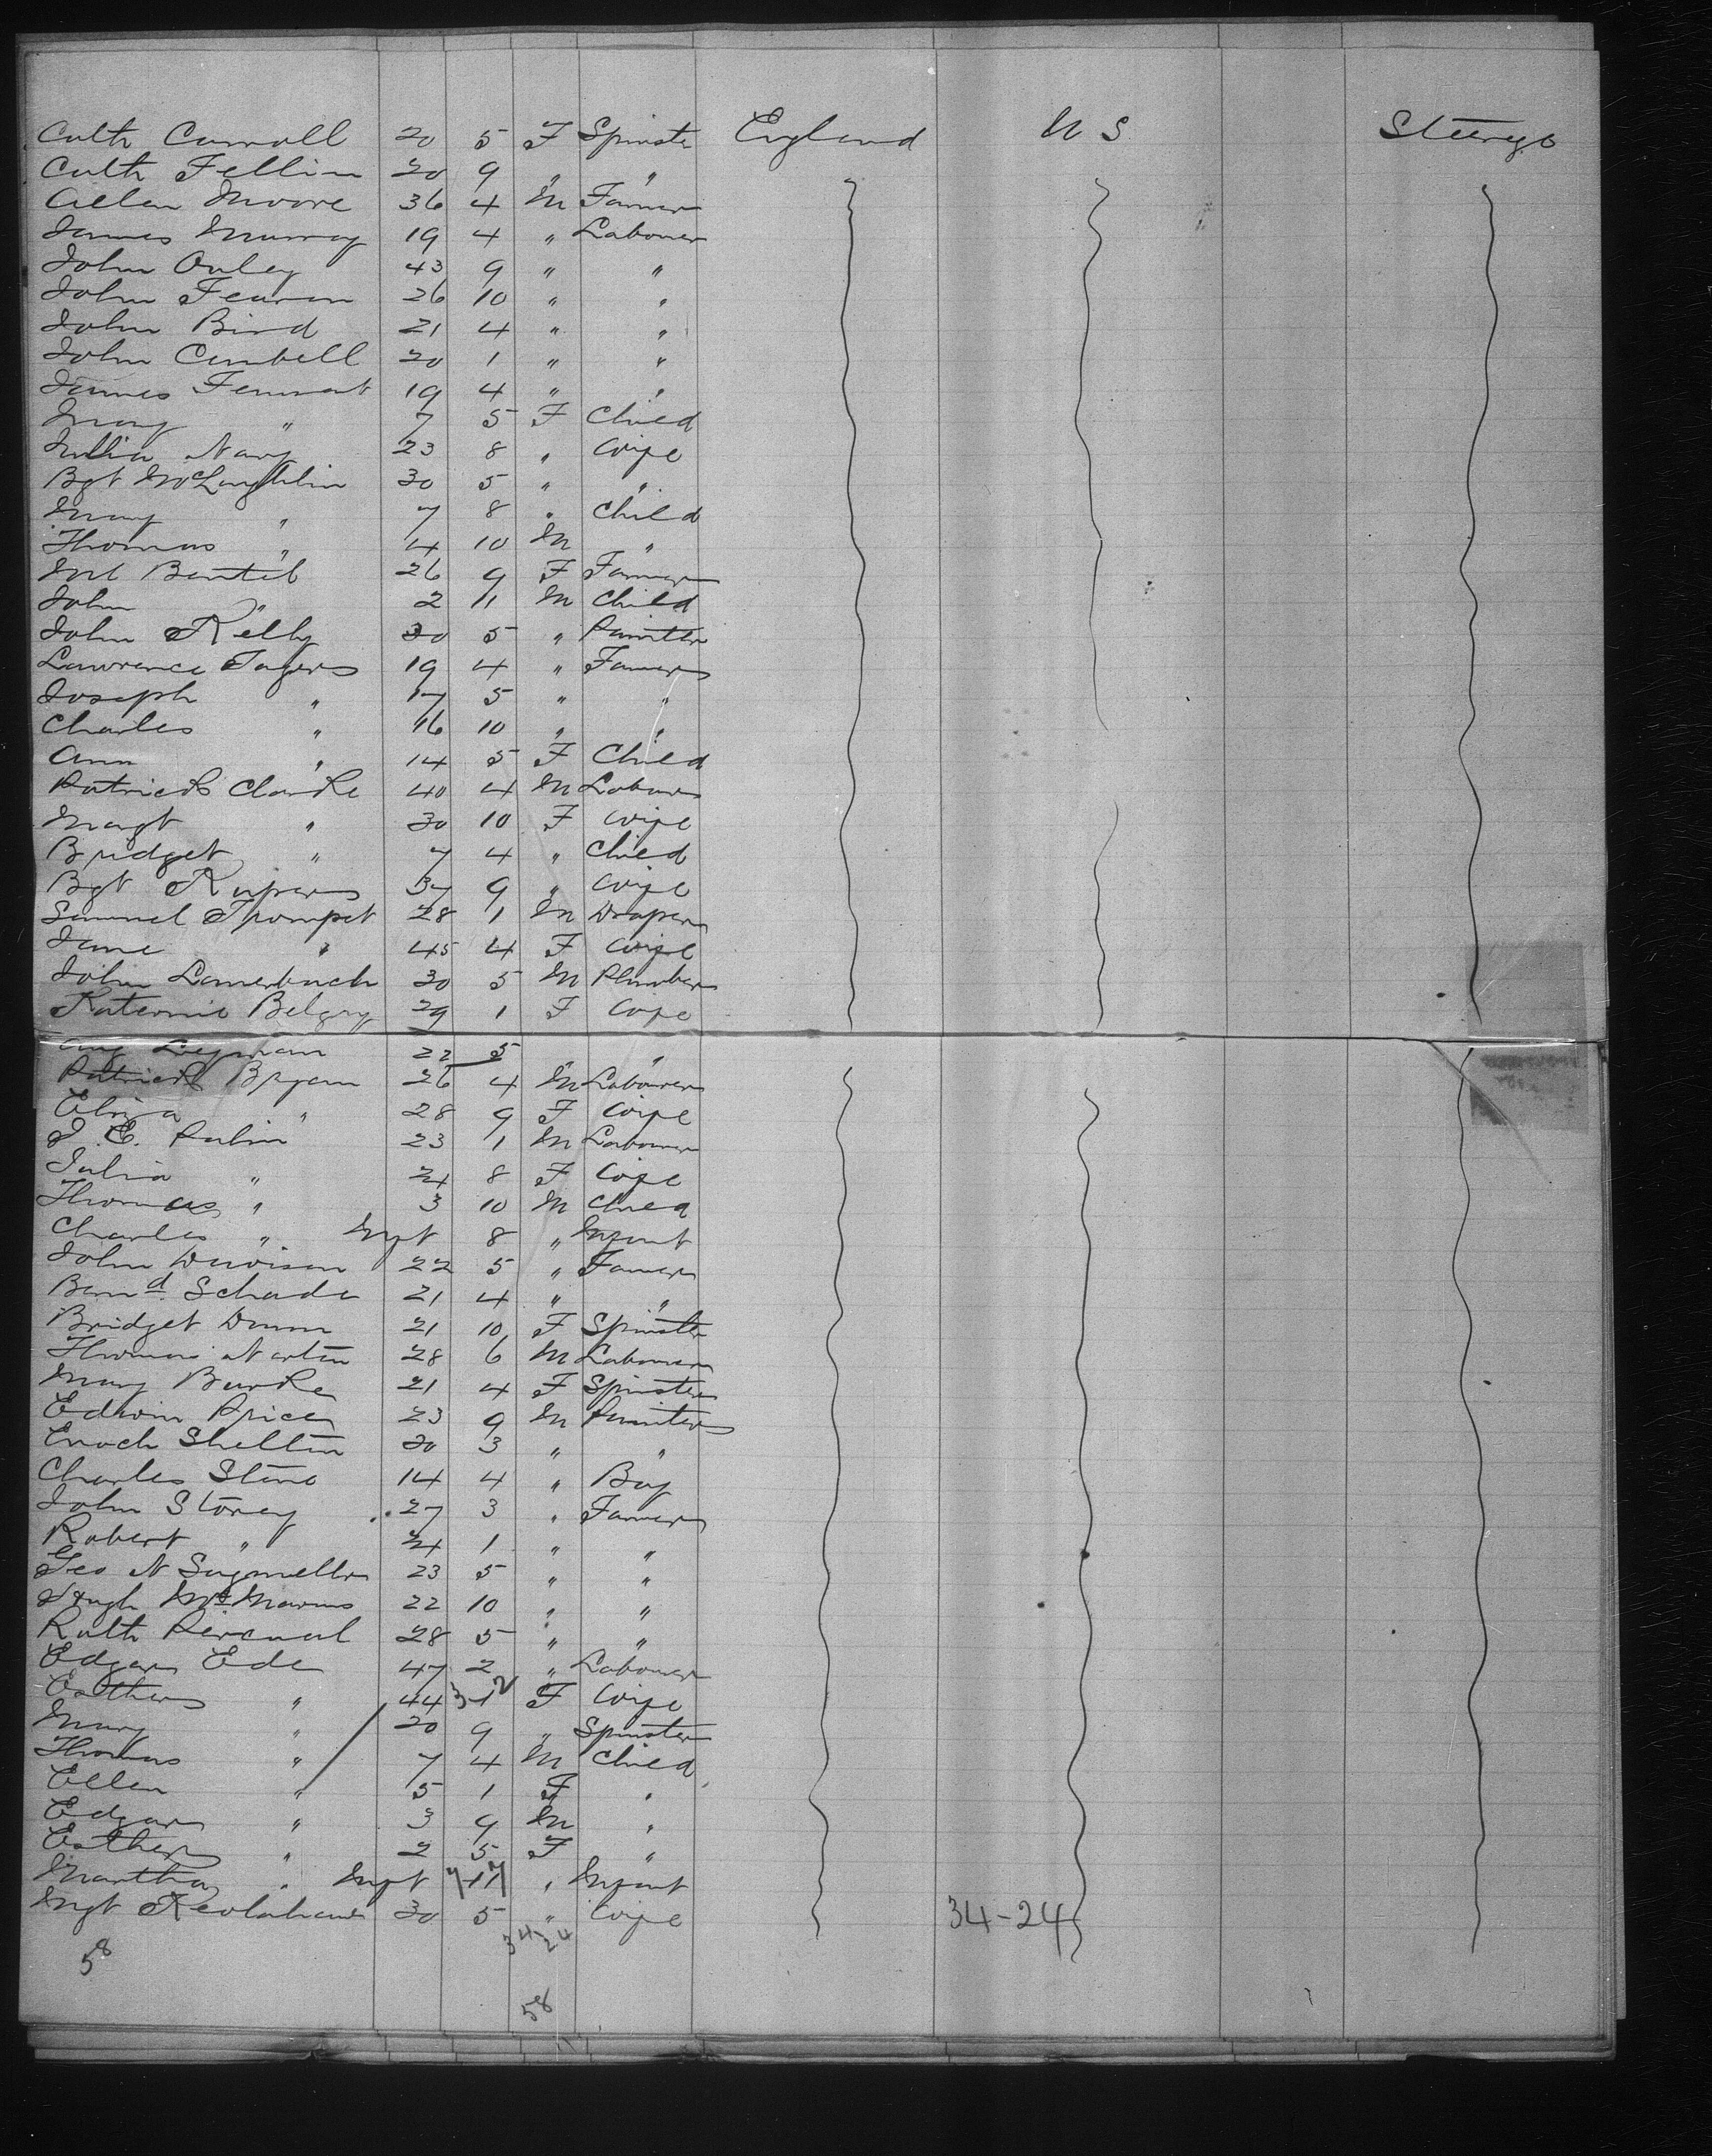 Cath Carroll 20 5 F Spinster England U S. Steerage
Cath Fellin 20 9 " "
Allen Moore 36 4 M Farmer
James Murray 19 4 " Labourer
John Onley 43 9 " "
John Fearon 26 10 " "
John Bird 21 4 " "
John Cambell 20 1 " "
James Fermat 19 4 " "
Mary " 7 5 F Child
Nary 23 8 " Wife
Bgt McLaughlin 30 5 " "
Mary " 7 8 " Child
Thomas " 4 10 M "
26 9 F Farmer
John " 2 11 M Child
John Kelly 30 5 " Painter
Lawrence 19 4 " Farmer
Joseph " 17 5 " "
Charles " 16 10 " "
Ann " 14 5 F Child
Patrick Clarke 40 4 M Labour
Margt " 30 10 F Wife
Bridget " 7 4 " Child
Bgt 37 9 " Wife
Samuel 28 1 M Draper
Jane " 45 4 F Wife
John Lauerbach 30 5 M Plumber
29 1 F Wife
22 5 " "
Patrick Bryan 26 4 M Labourer
Eliza " 28 9 F Wife
J. E. Palin 23 1 M Labourer
Julia " 24 8 F Wife
Thomas " 3 10 M Child
Charles " Inft 8 " Infant
John Davison 22 5 " Farmer
Bernd. Schade 21 4 " "
Bridget Dunn 21 10 F Spinster
Thomas Norton 28 6 M Labourer
Mary Burke 21 4 F Spinster
Edwin Price 23 9 M Painter
Enoch Shelton 20 3 " "
Charles Stone 14 4 " Boy
John Storey 27 3 " Farmer
Robert " 24 1 " "
Geo N 23 5 " "
Hugh McManus 22 10 " "
28 5 " "
Edgar Ede 47 2 " Labourer
Esther " 44 F Wife
Mary " 20 9 " Spinster
Thomas " 7 4 M Child
Ellen " 5 1 F "
Edgar " 3 9 M "
Esther " 2 5 F "
Martha " Inft " Infant
Mgt 30 5 " Wife 34-24
34-24
58
58